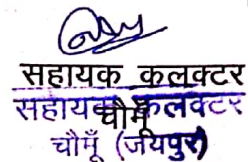 सहायक कलक्टर
चौमूँ
सहायक कलक्टर
चौमूँ (जयपुर)